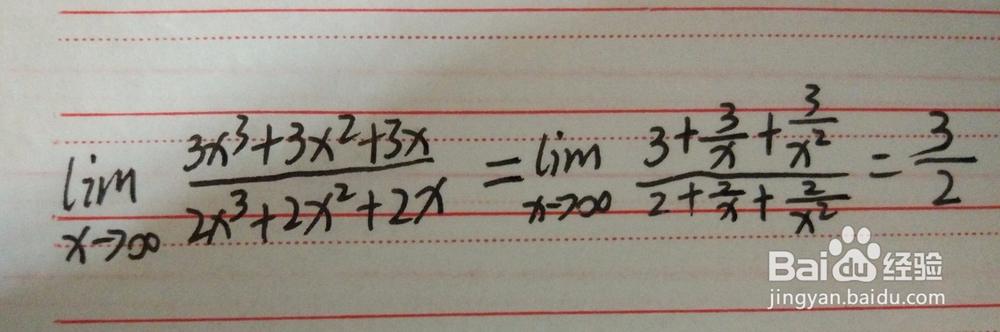 lim x→∞ (3x³+3x²+3x)/(2x³+2x²+2x) = lim x→∞ (3+3/x+3/x²)/(2+2/x+2/x²) = 3/2
Baidu经验
jingyan.baidu.com